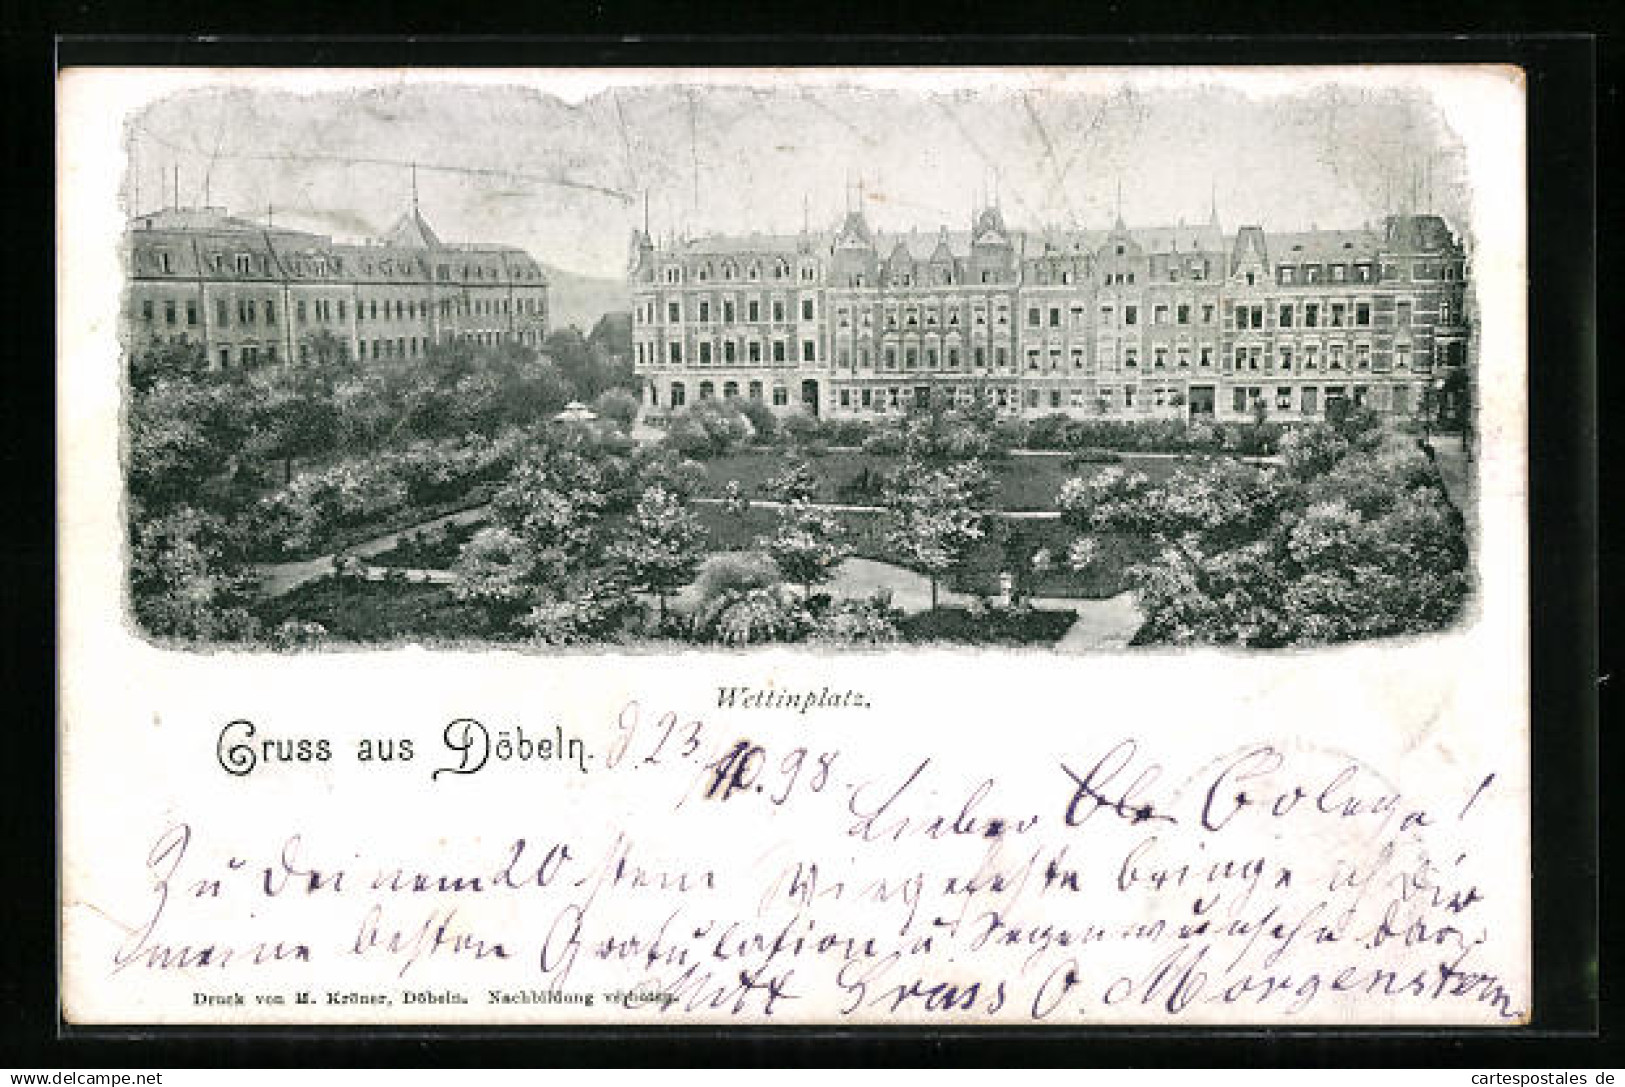 Wettinplatz.
Gruss aus Döbeln. d. 23.
10. 98.
Lieber Colega!
Zu Deinem 20 stem Wiegefeste bringe ich Dir
meine besten Gratulation u. Segenwünsche dar.
Mit Gruss O. Morgenstern.
Druck von M. Kröner, Döbeln. Nachbildung verboten.
cartespostales de